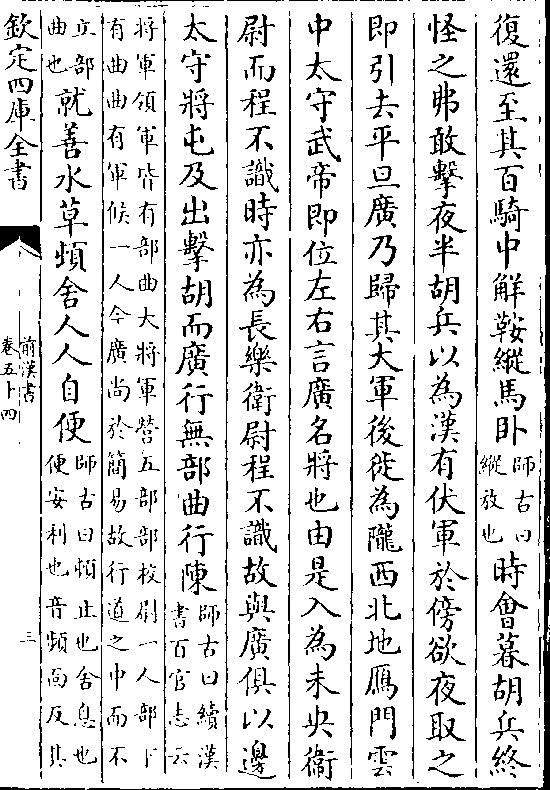 復還至其百騎中解鞍縱馬卧師古曰縱放也時會暮胡兵終
怪之弗敢擊夜半胡兵以為漢有伏軍於傍欲夜取之
即引去平旦廣乃歸其大軍後徙為隴西北地鴈門雲
中太守武帝即位左右言廣名將也由是入為未央衛
尉而程不識時亦為長樂衛尉程不識故與廣俱以邊
太守將屯及出擊胡而廣行無部曲行陳師古曰續漢書百官志云
將軍領軍皆有部曲大將軍營五部部校尉一人部下
有曲曲有軍候一人今廣尚於簡易故行道之中而不
立部曲也就善水草頓舍人人自便師古曰頓止也舍息也便安利也音頻面反其
欽定四庫全書
前漢書
卷五十四
三